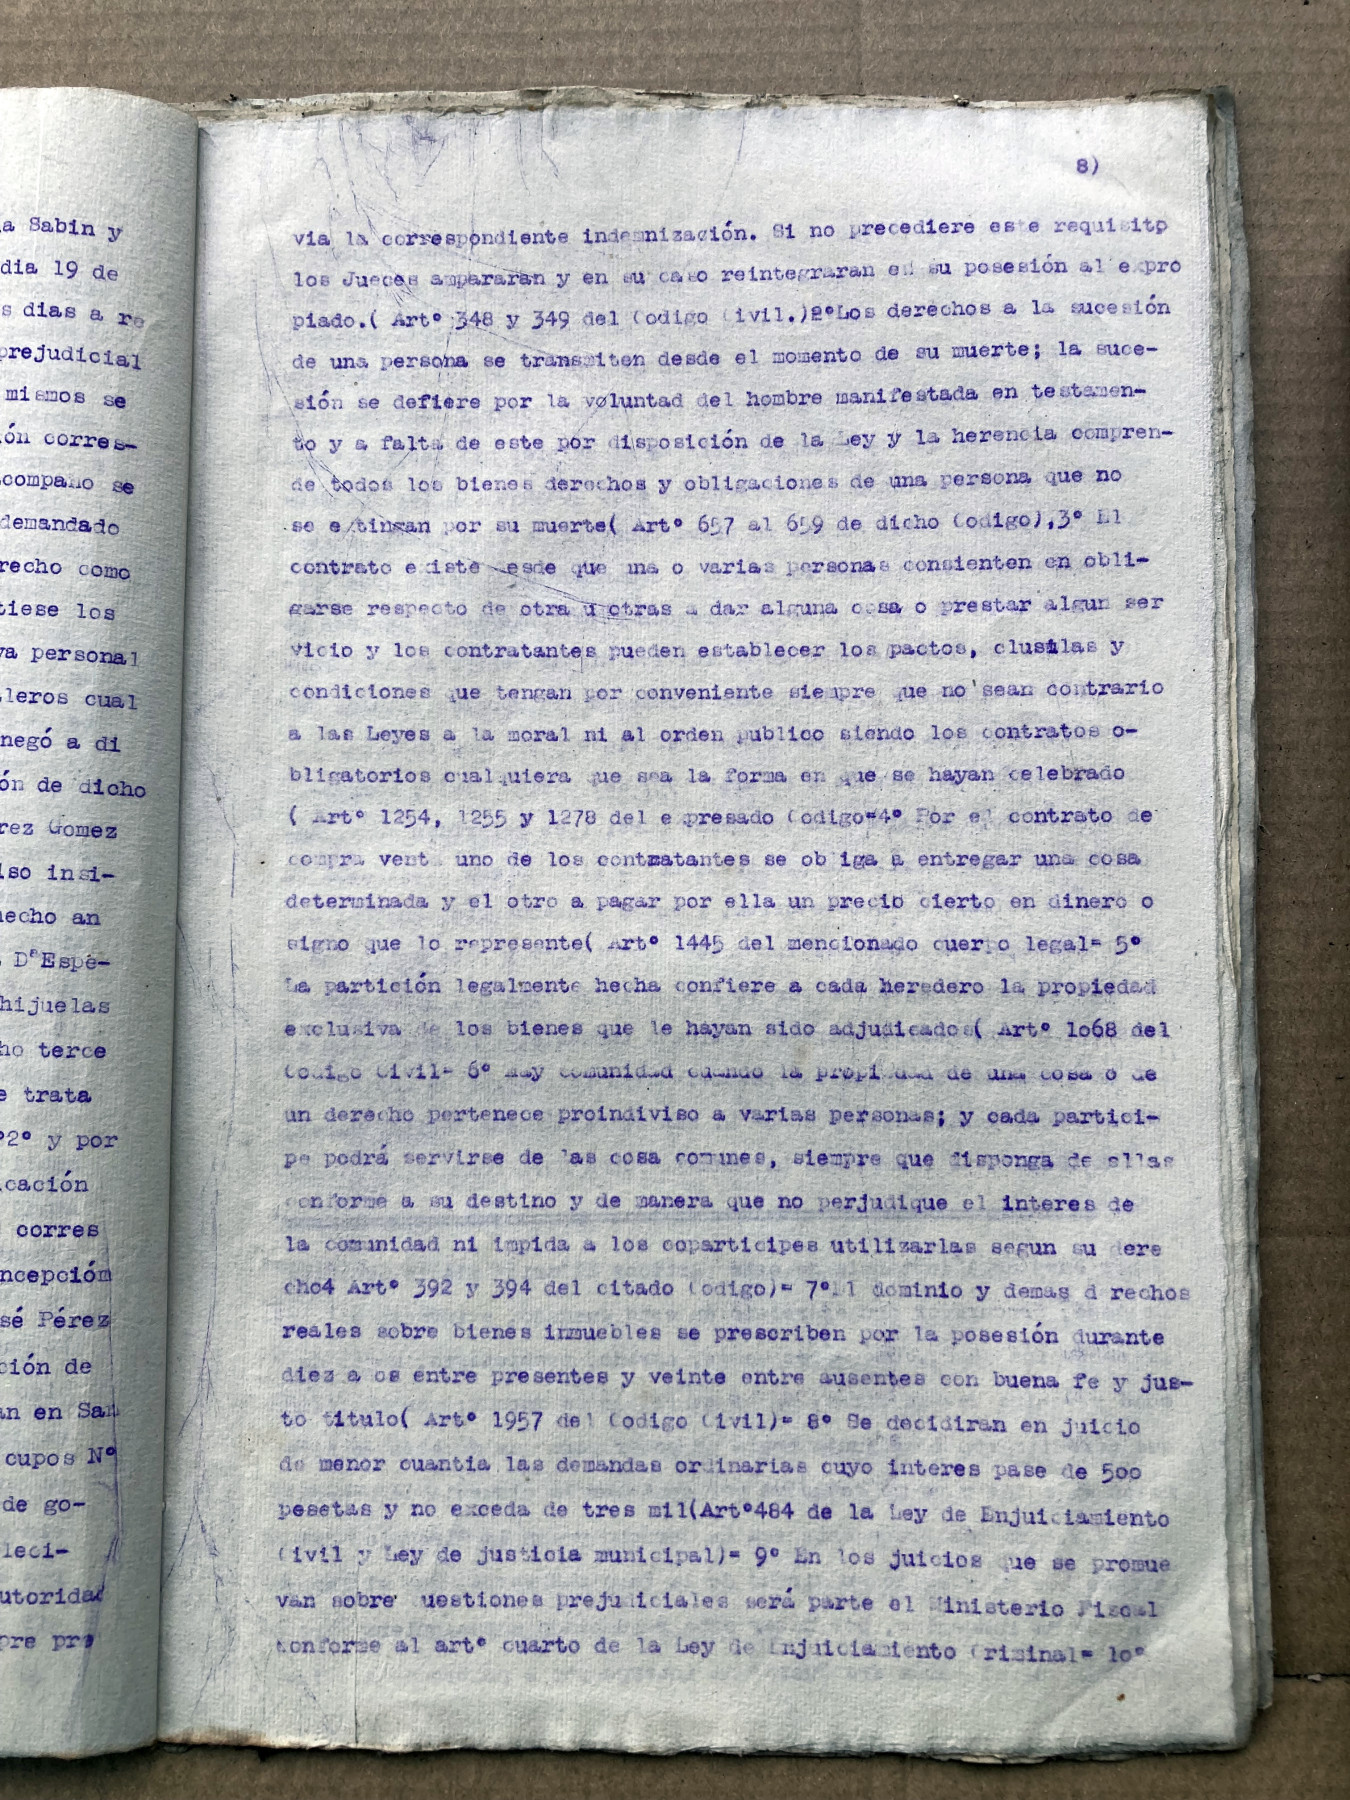 a Sabin y
dia 19 de
s dias a re
prejudicial
mismos se
ón corres-
compaño se
demandado
recho como
tiese los
va personal
leros cual
negó a di
ón de dicho
rez Gomez
iso insi-
hecho an
DªEspe-
hijuelas
ho terce
e trata
º2º y por
cación
corres
ncepcióm
sé Pérez
ción de
an en San
cupos Nº
de go-
leci-
utoridad
pre pre
8)
via la correspondiente indemnización. Si no precediere este requisito
los Jueces ampararan y en su caso reintegraran en su posesión al expro
piado.( Artº 348 y 349 del Codigo Civil.)2ºLos derechos a la sucesión
de una persona se transmiten desde el momento de su muerte; la suce-
sión se defiere por la voluntad del hombre manifestada en testamen-
to y a falta de este por disposición de la Ley y la herencia compren-
de todos los bienes derechos y obligaciones de una persona que no
se extingan por su muerte( Artº 657 al 659 de dicho Codigo),3º El
contrato existe desde que una o varias personas consienten en obli-
garse respecto de otra u otras a dar alguna cosa o prestar algun ser
vicio y los contratantes pueden establecer los pactos, clusulas y
condiciones que tengan por conveniente siempre que no sean contrario
a las Leyes a la moral ni al orden publico siendo los contratos o-
bligatorios cualquiera que sea la forma en que se hayan celebrado
( Artº 1254, 1255 y 1278 del expresado Codigo=4º Por el contrato de
compra venta uno de los contratantes se obliga a entregar una cosa
determinada y el otro a pagar por ella un precio cierto en dinero o
signo que lo represente( Artº 1445 del mencionado cuerpo legal= 5º
La partición legalmente hecha confiere a cada heredero la propiedad
exclusiva de los bienes que le hayan sido adjudicados( Artº 1o68 del
Codigo Civil= 6º Hay comunidad cuando la propiedad de una cosa o de
un derecho pertenece proindiviso a varias personas; y cada partici-
pe podrá servirse de las cosa comunes, siempre que disponga de ellas
conforme a su destino y de manera que no perjudique el interes de
la comunidad ni impida a los coparticipes utilizarlas segun su dere
cho4 Artº 392 y 394 del citado Codigo)= 7ºEl dominio y demas derechos
reales sobre bienes inmuebles se prescriben por la posesión durante
diez años entre presentes y veinte entre ausentes con buena fe y jus-
to titulo( Artº 1957 del Codigo Civil)= 8º Se decidiran en juicio
de menor cuantia las demandas ordinarias cuyo interes pase de 5oo
pesetas y no exceda de tres mil(Artº484 de la Ley de Enjuiciamiento
Civil y Ley de justicia municipal)= 9º En los juicios que se promue
van sobre cuestiones prejudiciales será parte el Ministerio Fiscal
conforme al artº cuarto de la Ley de Enjuiciamiento Criminal= 1oº